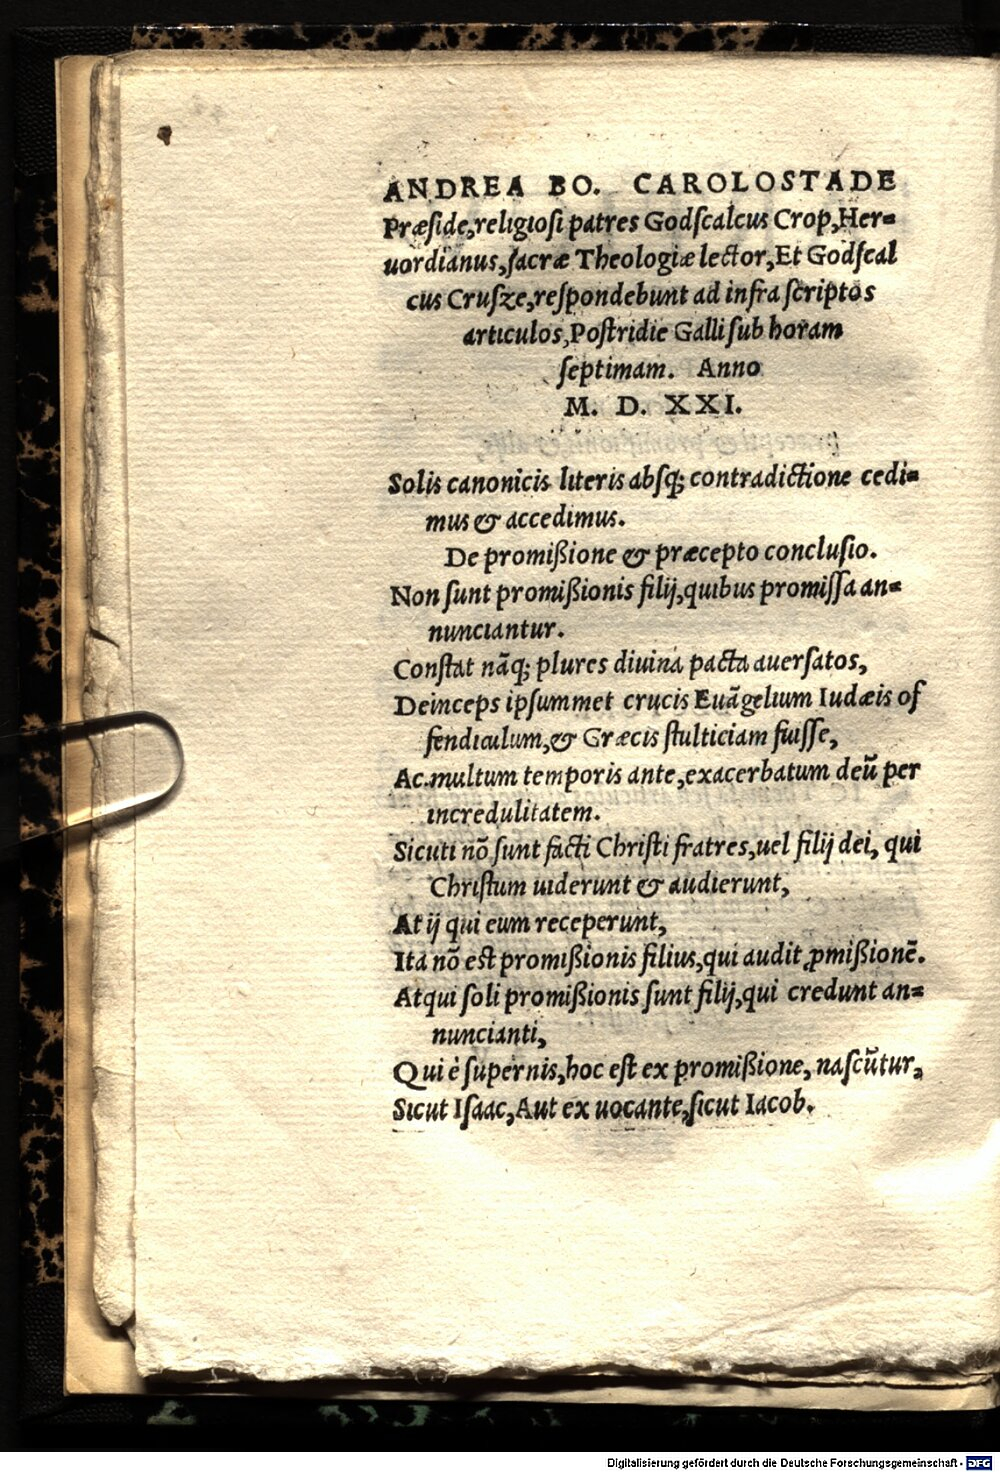 ANDREA BO. CAROLOSTADE
Præſide,religioſi patres Godſcalcus Crop,Her=
uordianus,ſacræ Theologiæ lector,Et Godſcal
cus Cruſze,reſpondebunt ad infra ſcriptos
articulos,Poſtridie Galli ſub horam
ſeptimam. Anno
M. D. XXI.
Solis canonicis literis abſq; contradictione cedi=
mus & accedimus.
De promißione & præcepto concluſio.
Non ſunt promißionis filij,quibus promiſſa an=
nunciantur.
Conſtat nãq; plures diuina pacta auerſatos,
Deinceps ipſummet crucis Euãgelium Iudæis of
fendiculum,& Græcis ſtulticiam fuiſſe,
Ac multum temporis ante,exacerbatum deũ per
incredulitatem.
Sicuti nõ ſunt facti Chriſti fratres,uel filij dei, qui
Chriſtum uiderunt & audierunt,
At ij qui eum receperunt,
Ita nõ eſt promißionis filius,qui audit ꝓmißionẽ.
Atqui ſoli promißionis ſunt filij,qui credunt an=
nuncianti,
Qui è ſupernis,hoc eſt ex promißione, naſcũtur,
Sicut Iſaac,Aut ex uocante,ſicut Iacob.
Digitalisierung gefördert durch die Deutsche Forschungsgemeinschaft - DFG